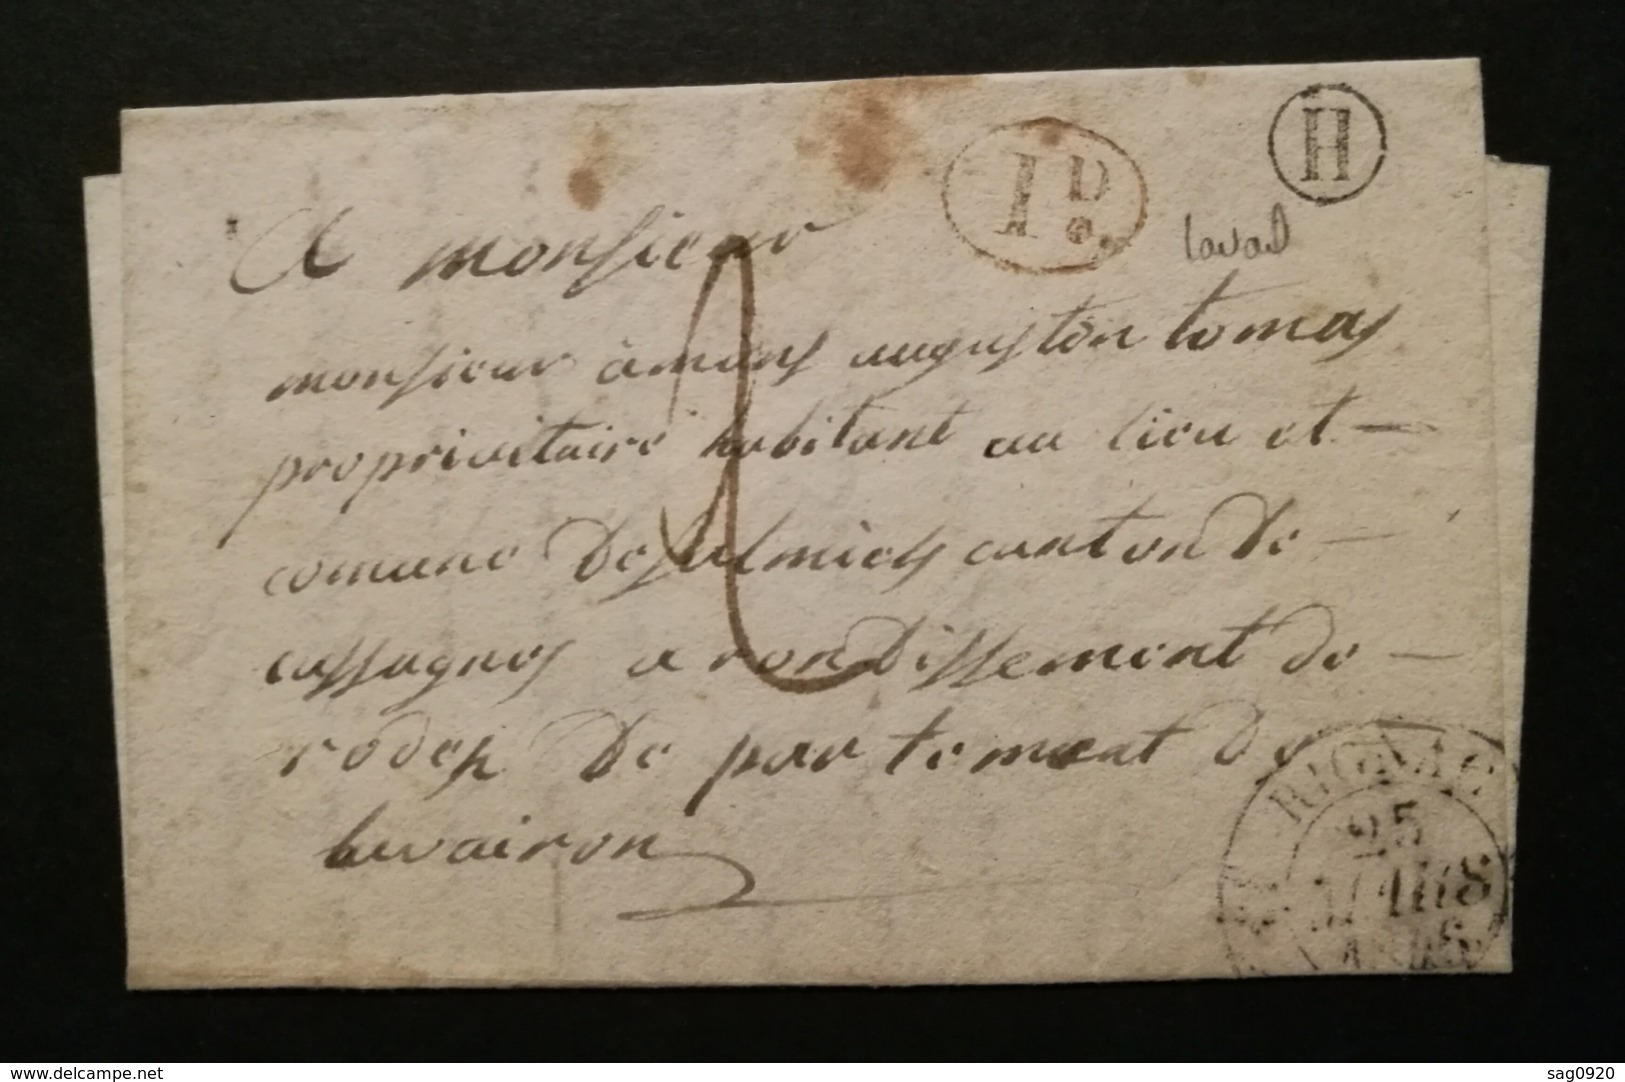 H
1D.
laval
A monsieur
monsieur amans auguston tomas
proprivetaire habitant au lieu et
comune de salmiech canton de
cassagnes arondissement de
rodez de partement de
lavairon
2
RIGNAC
25
MARS
www.delcampe.net
sag0920